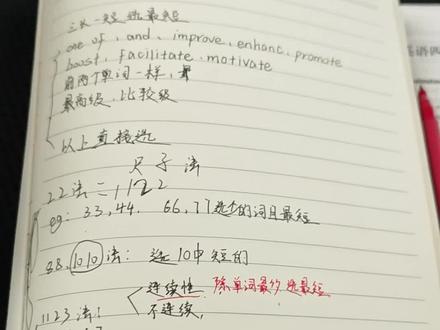 三长一短选最短
one of, and, improve, enhanc, promote
boost, facilitate, motivate
前两个单词一样，最
最高级、比较级
以上直接选
尺子法
22法 = 1122
eg: 33,44. 66,77选少的词且最短
88,1010法：选10中短的
1123法：
连续性 除单词最多选最短
不连续,